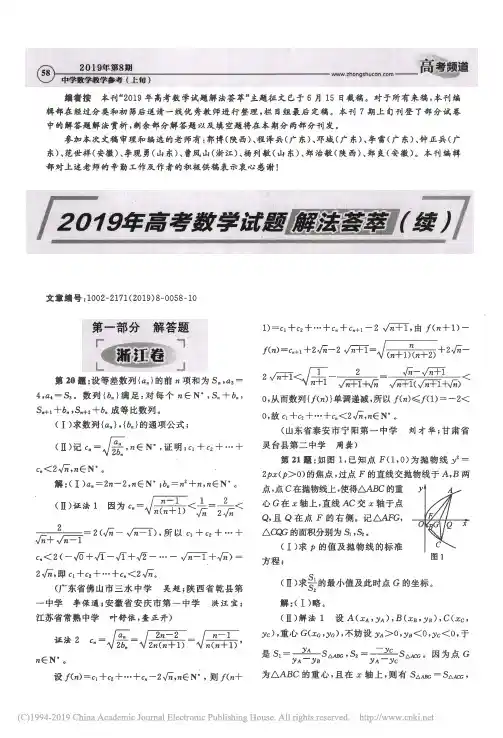 58
2019年第8期
中学数学教学参考(上旬)
www.zhongshucan.com
高考频道
编者按 本刊“2019年高考数学试题解法荟萃”主题征文已于6月15日截稿。对于所有来稿,本刊编
辑部在经过分类和初筛后送请一线优秀教师进行整理,栏目组最后定稿。本刊7期上旬刊登了部分试卷
中的解答题解法赏析,剩余部分解答题以及填空题将在本期分两部分刊发。
参加本次文稿审理和编选的老师有:郭博(陕西)、程泽兵(广东)、邓城(广东)、李雷(广东)、钟正兵(广
东)、范世祥(安徽)、李现勇(山东)、曹凤山(浙江)、杨列敏(山东)、郑治敏(陕西)、郑良(安徽)。本刊编辑
部对上述老师的辛勤工作及作者的积极供稿表示衷心感谢!
2019年高考数学试题 解法荟萃(续)
文章编号:1002-2171(2019)8-0058-10
第一部分 解答题
浙江卷
第20题:设等差数列{aₙ}的前n项和为Sₙ,a₃=
4,a₄=S₃。数列{bₙ}满足:对每个n∈N*,Sₙ+bₙ,
Sₙ₊₁+bₙ,Sₙ₊₂+bₙ成等比数列。
(Ⅰ)求数列{aₙ},{bₙ}的通项公式;
(Ⅱ)记cₙ=√(aₙ/2bₙ),n∈N*,证明:c₁+c₂+…+
cₙ<2√n,n∈N*。
解:(Ⅰ)aₙ=2n-2,n∈N*;bₙ=n²+n,n∈N*。
(Ⅱ)证法1 因为cₙ=√((n-1)/(n(n+1)))<√(1/n)=2/(2√n)<
2/(√n+√(n-1))=2(√n-√(n-1)),所以c₁+c₂+…+
cₙ<2(-√0+√1-√1+√2-…-√(n-1)+√n)=
2√n,即c₁+c₂+…+cₙ<2√n。
(广东省佛山市三水中学 吴超;陕西省乾县第
一中学 李保通;安徽省安庆市第一中学 洪汪宝;
江苏省常熟中学 叶舒依,查正开)
证法2 cₙ=√(aₙ/2bₙ)=√((2n-2)/(2n(n+1)))=√((n-1)/(n(n+1))),
n∈N*。
设f(n)=c₁+c₂+…+cₙ-2√n,n∈N*,则f(n+
1)=c₁+c₂+…+cₙ+cₙ₊₁-2√(n+1),由f(n+1)-
f(n)=cₙ₊₁+2√n-2√(n+1)=√(n/((n+1)(n+2)))+2√n-
2√(n+1)<√(1/(n+1))-2/(√(n+1)+√n)=(√n-√(n+1))/(√(n+1)(√(n+1)+√n))<
0,从而数列{f(n)}单调递减,所以f(n)≤f(1)=-2<
0,故c₁+c₂+…+cₙ<2√n,n∈N*。
(山东省泰安市宁阳第一中学 刘才华;甘肃省
灵台县第二中学 周羹)
第21题:如图1,已知点F(1,0)为抛物线y²=
2px(p>0)的焦点,过点F的直线交抛物线于A,B两
点,点C在抛物线上,使得△ABC的重
心G在x轴上,直线AC交x轴于点
Q,且Q在点F的右侧。记△AFG,
△CQG的面积分别为S₁,S₂。
(Ⅰ)求p的值及抛物线的标准
方程;
y
A
F
O
G
Q
x
B
C
图1
(Ⅱ)求S₁/S₂的最小值及此时点G的坐标。
解:(Ⅰ)略。
(Ⅱ)解法1 设A(x_A,y_A),B(x_B,y_B),C(x_C,
y_C),重心G(x₀,y₀),不妨设y_A>0,y_B<0,y_C<0,于
是S₁=y_A/(y_A-y_B) S△ABG,S₂=-y_C/(y_A-y_C) S△ACG。因为点G
为△ABC的重心,且在x轴上,则有S△ABG=S△ACG,
(C)1994-2019 China Academic Journal Electronic Publishing House. All rights reserved. http://www.cnki.net